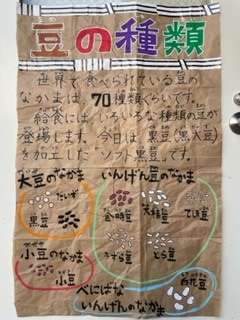 豆の種類
世界で食べられている豆の
なかまは、70種類くらいです。
給食にはいろいろな種類の豆が
登場します。今日は、黒豆(黒大豆)
を加工した"ソフト黒豆"です。
大豆のなかま
いんげん豆のなかま
だいず
黒豆
金時豆
大福豆
てぼ豆
うずら豆
とら豆
小豆のなかま
小豆
白花豆
べにばな
いんげんのなかま